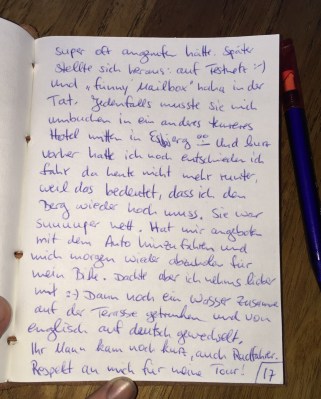 super oft angerufen hätte. Später
stellte sich heraus: auf Festnetz :-)
und "funny Mailbox" haha in der
Tat. Jedenfalls musste sie mich
umbuchen in ein andres teureres
Hotel mitten in Esbjerg Und kurz
vorher hatte ich noch entschieden ich
fahr da heute nicht mehr runter,
weil das bedeutet, dass ich den
Berg wieder hoch muss. Sie war
suuuuper nett. Hat mir angeboten
mit dem Auto hinzufahren und
mich morgen wieder abzuholen für
mein Bike. Dachte aber ich nehms lieber
mit :-) Dann noch ein Wasser zusamme
auf der Terasse getrunken und von
englisch auf deutsch gewechselt.
Ihr Mann kam noch kurz, auch Radfahrer.
Respekt an mich für meine Tour! /17